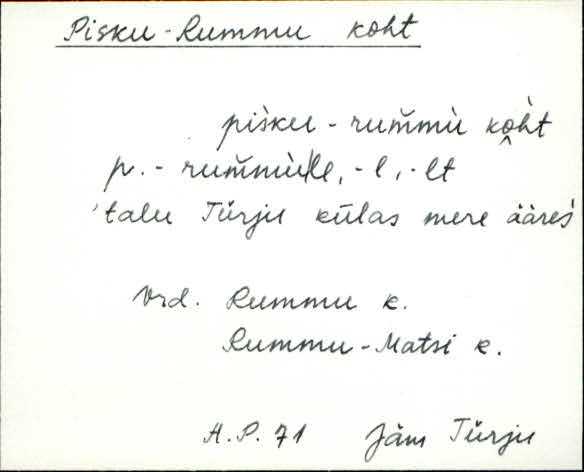 Pisku-Rummu koht
pisku-rum̆mù ko̭h̀t
p.-rum̆mù|le, -l, -lt
'talu Türju külas mere ääres'
Vrd. Rummu k.
Rummu-Matsi k.
H.P. 71 Jäm Türju